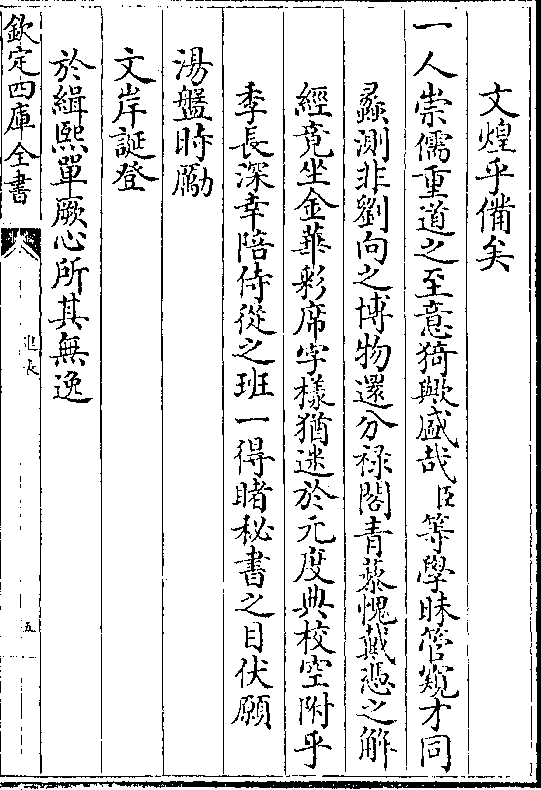 文煌乎備矣
一人崇儒重道之至意猗歟盛哉臣等學昧管窺才同
蠡測非劉向之博物還分祿閣青藜愧戴憑之解
經竟坐金華彩席字樣猶迷於元度典校空附乎
季長深幸陪侍從之班一得睹秘書之目伏願
湯盤時勵
文岸誕登
於緝熙單厥心所其無逸
欽定四庫全書
進表
五